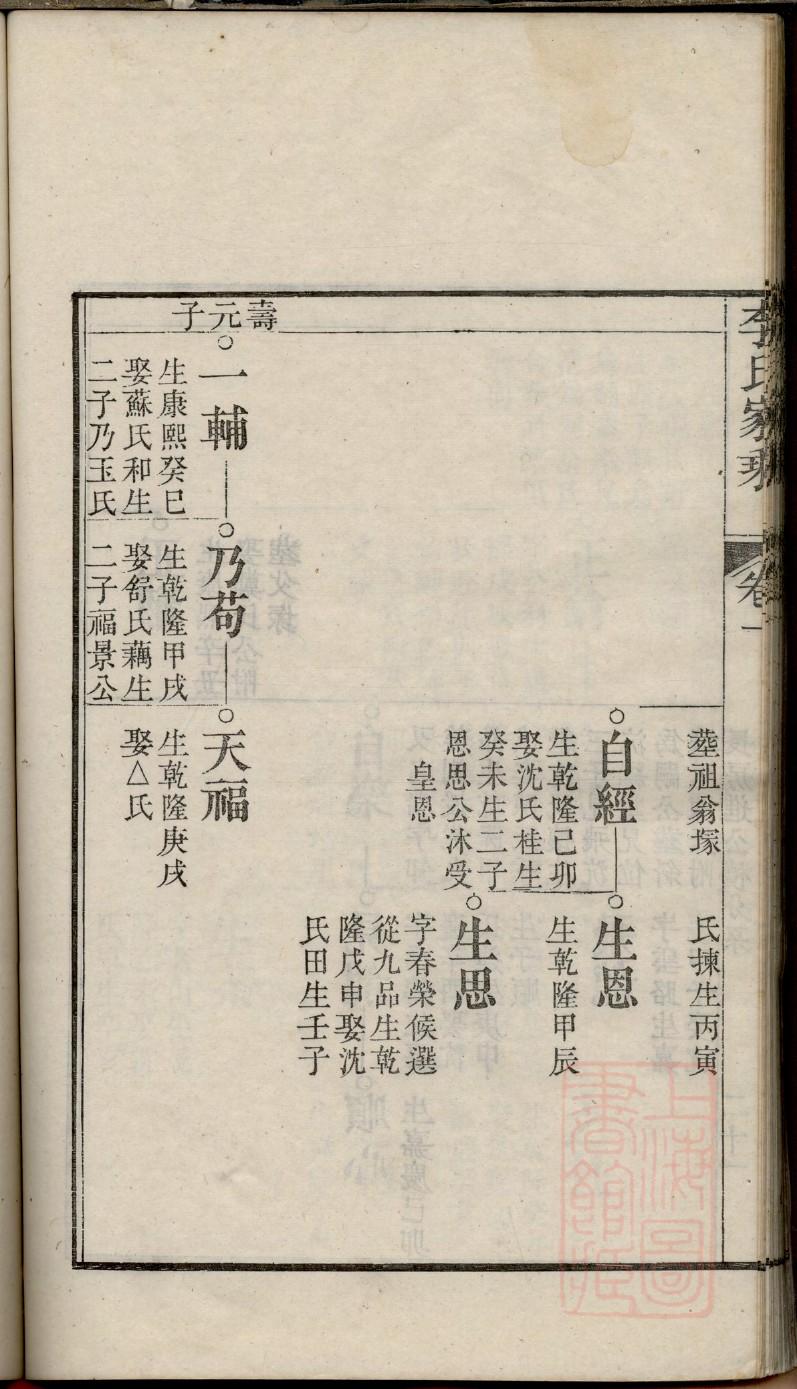 李氏家乘
卷一
塟祖翁塚
氏揀生丙寅
自經
生乾隆己卯
娶沈氏桂生
癸未生二子
恩思公沐受
皇恩
生恩
生乾隆甲辰
生思
字春榮候選
從九品生乾
隆戊申娶沈
氏田生壬子
壽元子
一輔
生康熙癸巳
娶蘇氏和生
二子乃玉氏
乃苟
生乾隆甲戌
娶舒氏藕生
二子福景公
天福
生乾隆庚戌
娶△氏
上海圖書館藏